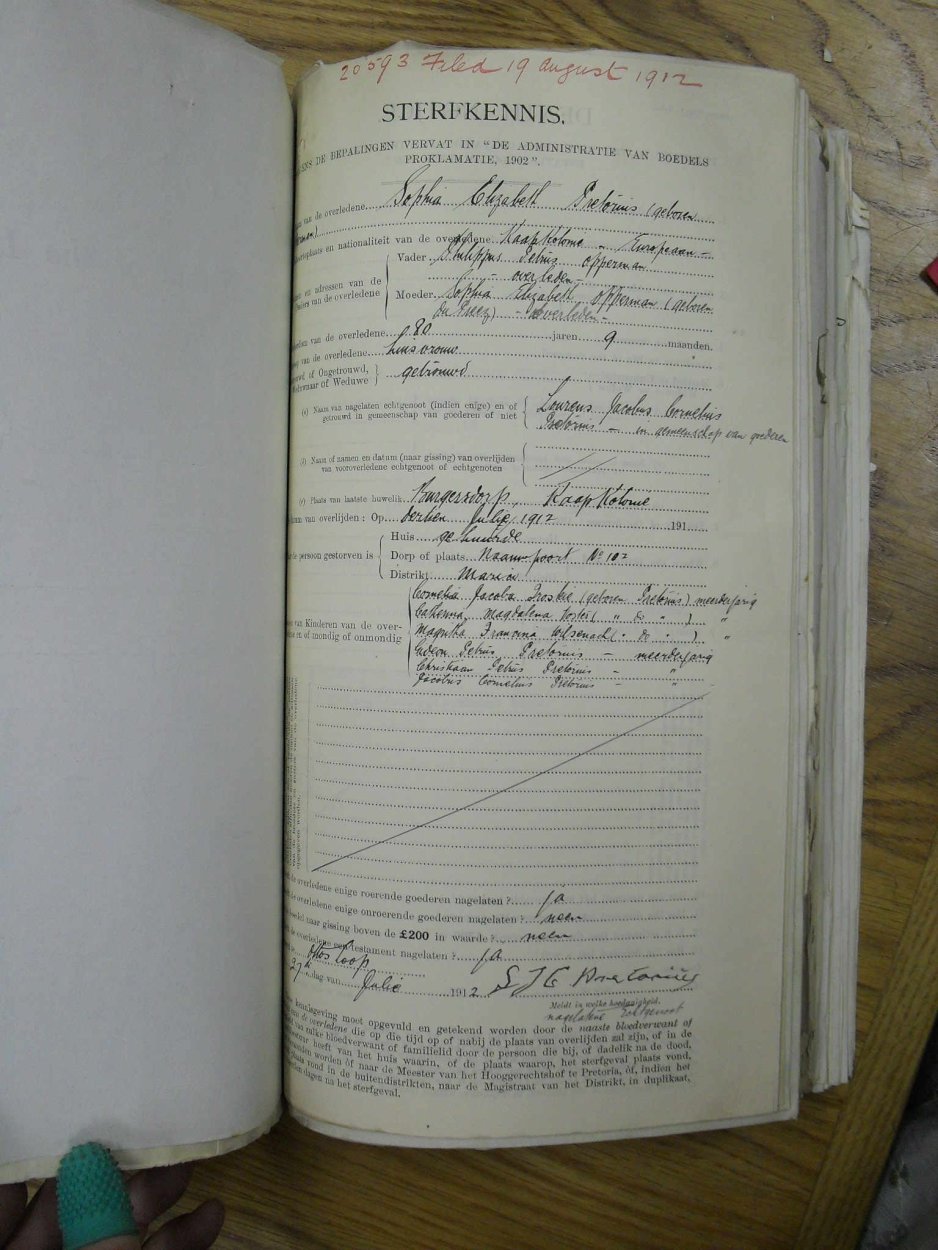 20593 Filed 19 August 1912
STERFKENNIS,
DE BEPALINGEN VERVAT IN "DE ADMINISTRATIE VAN BOEDELS
PROKLAMATIE, 1902".
van de overledene Sophia Elizabeth Pretorius (geboren
en nationaliteit van de overledene Kaap Kolonie " Europeaan -
Vader Philippus Petrus Opperman
- overleden -
en adressen van de
van de overledene
Moeder Sophia Elizabeth Opperman (geboren
du Preez) - overleden -
van de overledene 80 jaren 9 maanden.
van de overledene huisvrouw
of Ongetrouwd, of Weduwe } getrouwd
(a) Naam van nagelaten echtgenoot (indien enige) en of
getrouwd in gemeenschap van goederen of niet
Lourens Jacobus Cornelius
Pretorius - in gemeenschap van goederen
(b) Naam of namen en datum (naar gissing) van overlijden
van vooroverledene echtgenoot of echtgenoten
(c) Plaats van laatste huwelik Burgersdorp, Kaap Kolonie
van overlijden: Op dertien Julie, 1912 191
Huis gehuurde
persoon gestorven is
Dorp of plaats Naauwpoort No 102
Distrikt Marico
Cornelia Jacoba (geboren Pretorius) meerderjarig
Catherina Magdalena " do " ) "
van Kinderen van de over-
en of mondig of onmondig
Francina " do " ) "
Gideon Petrus Pretorius - meerderjarig
Christiaan Petrus Pretorius - "
Jacobus Cornelius Pretorius - "
de overledene enige roerende goederen nagelaten? ja
de overledene enige onroerende goederen nagelaten? neen
boedel naar gissing boven de £200 in waarde? neen
de overledene een testament nagelaten? ja
27 dag van Julie 1912 S J C Pretorius
Meldt in welke hoedanigheid.
nagelatene Echtgenoot
kennisgeving moet opgevuld en getekend worden door de naaste bloedverwant of
van de overledene die op die tijd op of nabij de plaats van overlijden zal zijn, of in de
van zulke bloedverwant of familielid door de persoon die bij, of dadelik na de dood,
heeft van het huis waarin, of de plaats waarop, het sterfgeval plaats vond,
worden òf naar de Meester van het Hooggerechtshof te Pretoria, òf, indien het
vond in de buitendistrikten, naar de Magistraat van het Distrikt, in duplikaat,
dagen na het sterfgeval.